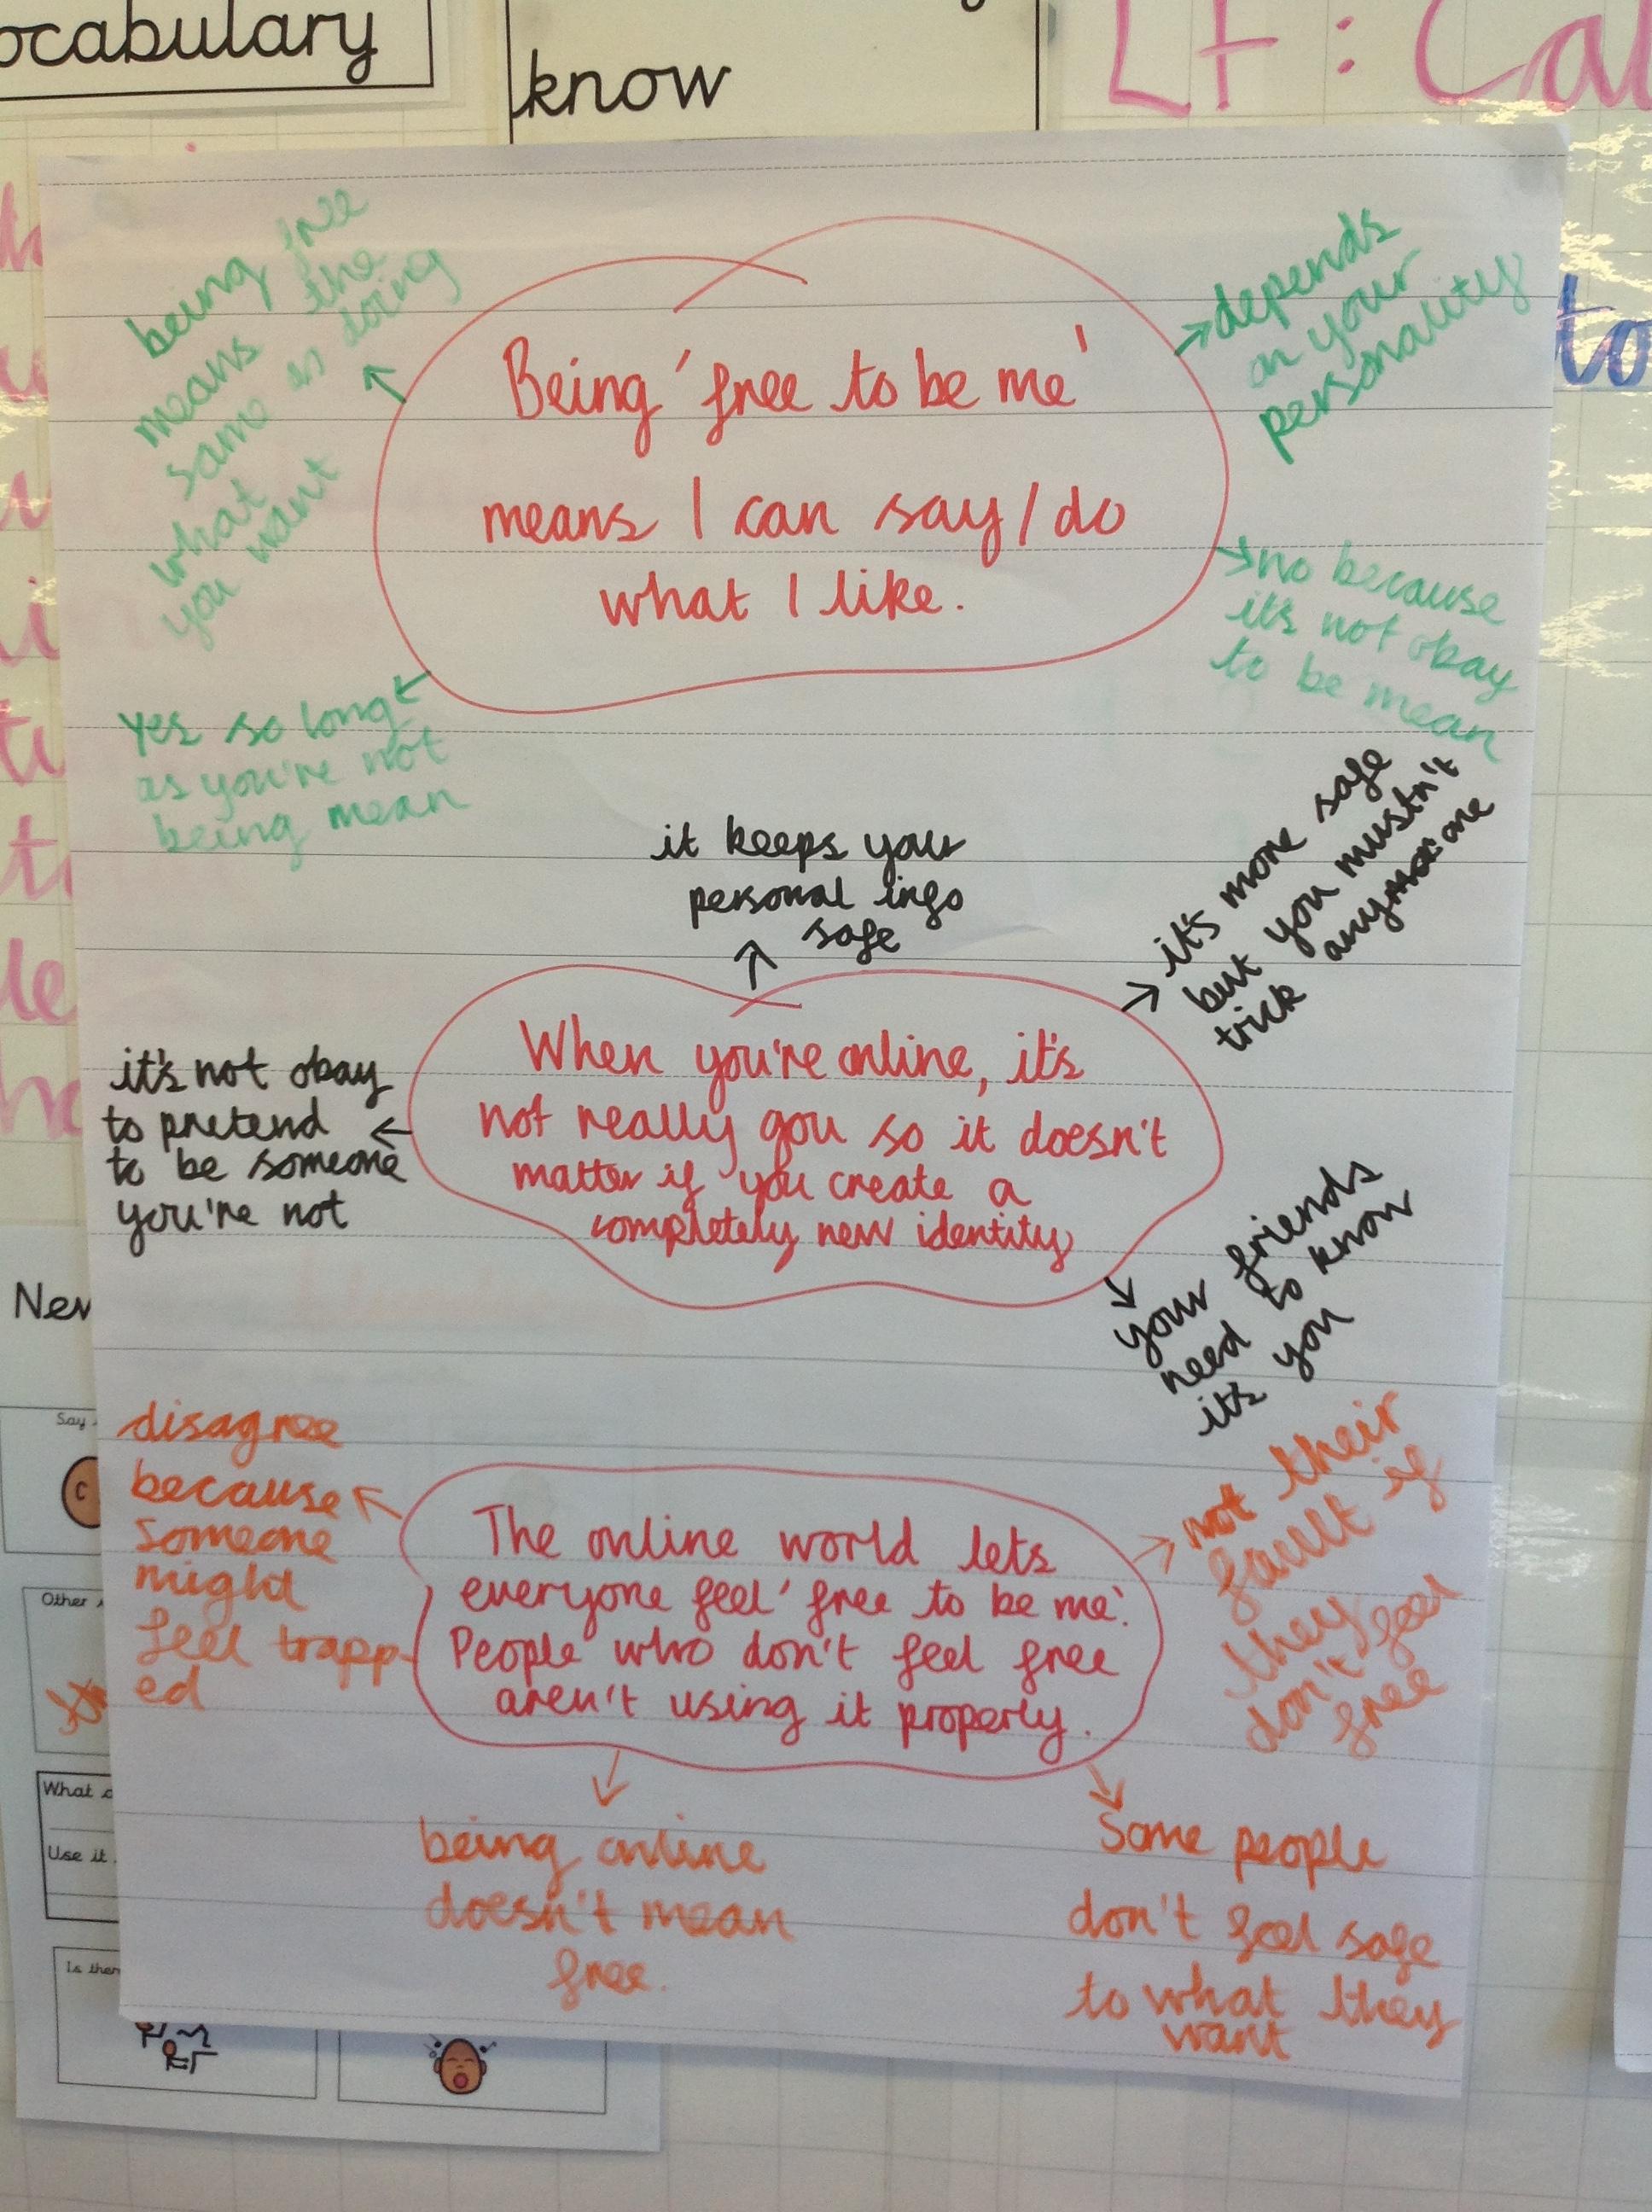 ocabulary
know
LF: Cal
being free
means the
same as doing
what
you want
Being 'free to be me'
means I can say/do
what I like.
depends
on your
personality
to
no because
it's not okay
to be mean
Yes so long
as you're not
being mean
it keeps your
personal info
safe
it's more safe
but you mustn't
trick anymore
it's not okay
to pretend
to be someone
you're not
When you're online, it's
not really you so it doesn't
matter if you create a
completely new identity
your friends
need to know
it's you
New
disagree
because
someone
might
feel trapp
ed
The online world lets
everyone feel 'free to be me'.
People who don't feel free
aren't using it properly.
not their
fault if
they feel
don't
free
Say
C
Other
What
Use it
being online
doesn't mean
free.
Some people
don't feel safe
to what they
want
Is ther